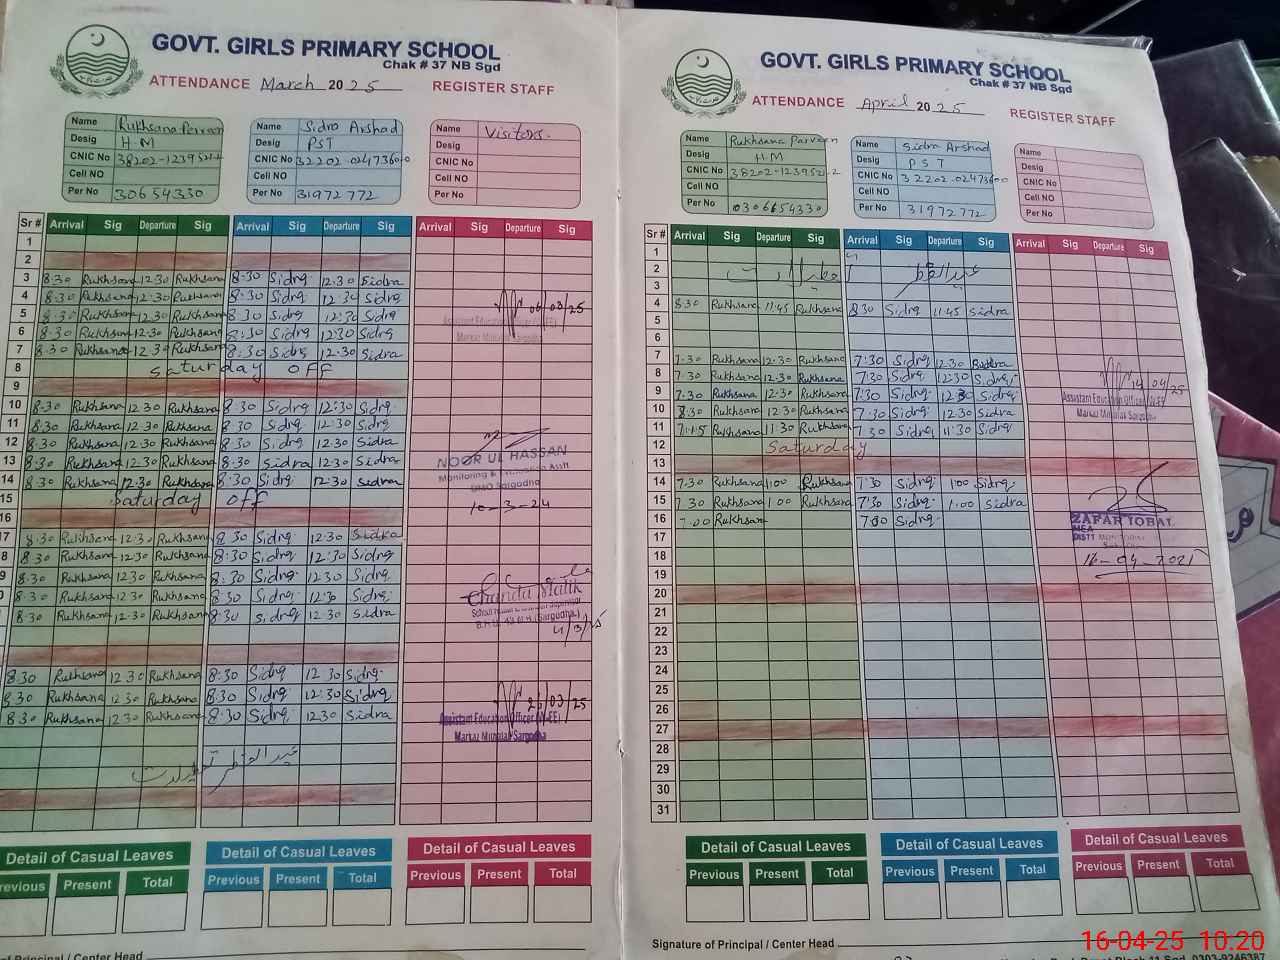 GOVT. GIRLS PRIMARY SCHOOL
Chak # 37 NB Sgd
ATTENDANCE March 2025 REGISTER STAFF
Name Rukhsana Parveen
Desig H.M
CNIC No
Cell NO
Per No 30654330
Name Sidra Arshad
Desig PST
CNIC No 32202-02473600
Cell NO
Per No 31972772
Name Visitors.
Desig
CNIC No
Cell NO
Per No
Sr # Arrival Sig Departure Sig Arrival Sig Departure Sig Arrival Sig Departure Sig
1
2
3 8:30 Rukhsana 12:30 Rukhsana 8:30 Sidra 12:30 Sidra
4 8:30 Rukhsana 12:30 Rukhsana 8:30 Sidra 12:30 Sidra
5 8:30 Rukhsana 12:30 Rukhsana 8:30 Sidra 12:30 Sidra
6 8:30 Rukhsana 12:30 Rukhsana 8:30 Sidra 12:30 Sidra
7 8:30 Rukhsana 12:30 Rukhsana 8:30 Sidra 12:30 Sidra
06/03/25
Assistant Education Officer (W-EE)
8 Saturday off
9
10 8:30 Rukhsana 12:30 Rukhsana 8:30 Sidra 12:30 Sidra
11 8:30 Rukhsana 12:30 Rukhsana 8:30 Sidra 12:30 Sidra
12 8:30 Rukhsana 12:30 Rukhsana 8:30 Sidra 12:30 Sidra
13 8:30 Rukhsana 12:30 Rukhsana 8:30 Sidra 12:30 Sidra
14 8:30 Rukhsana 12:30 Rukhsana 8:30 Sidra 12:30 Sidra
NOOR UL HASSAN
Monitoring &
DMO Sargodha
10-3-24
15 Saturday off
16
17 8:30 Rukhsana 12:30 Rukhsana 8:30 Sidra 12:30 Sidra
8 8:30 Rukhsana 12:30 Rukhsana 8:30 Sidra 12:30 Sidra
9 8:30 Rukhsana 12:30 Rukhsana 8:30 Sidra 12:30 Sidra
8:30 Rukhsana 12:30 Rukhsana 8:30 Sidra 12:30 Sidra
8:30 Rukhsana 12:30 Rukhsana 8:30 Sidra 12:30 Sidra
Chanda Malik
8:30 Rukhsana 12:30 Rukhsana 8:30 Sidra 12:30 Sidra
8:30 Rukhsana 12:30 Rukhsana 8:30 Sidra 12:30 Sidra
8:30 Rukhsana 12:30 Rukhsana 8:30 Sidra 12:30 Sidra
26/03/25
Assistant Education Officer (W-EE)
عید الفطر تعطیلات
Detail of Casual Leaves Detail of Casual Leaves Detail of Casual Leaves
Previous Present Total Previous Present Total Previous Present Total
of Principal / Center Head
GOVT. GIRLS PRIMARY SCHOOL
Chak # 37 NB Sgd
ATTENDANCE April 2025 REGISTER STAFF
Name Rukhsana Parveen
Desig H.M
CNIC No
Cell NO
Per No 0306654330
Name Sidra Arshad
Desig PST
CNIC No 32202-02473600
Cell NO
Per No 31972772
Name
Desig
CNIC No
Cell NO
Per No
Sr # Arrival Sig Departure Sig Arrival Sig Departure Sig Arrival Sig Departure Sig
1
2 عید الفطر تعطیلات
3
4 8:30 Rukhsana 11:45 Rukhsana 8:30 Sidra 11:45 Sidra
5
6
7 7:30 Rukhsana 12:30 Rukhsana 7:30 Sidra 12:30 Sidra
8 7:30 Rukhsana 12:30 Rukhsana 7:30 Sidra 12:30 Sidra
9 7:30 Rukhsana 12:30 Rukhsana 7:30 Sidra 12:30 Sidra
10 8:30 Rukhsana 12:30 Rukhsana 7:30 Sidra 12:30 Sidra
11 7:15 Rukhsana 11:30 Rukhsana 7:30 Sidra 11:30 Sidra
14/04/25
Assistant Education Officer (W-EE)
12 Saturday
13
14 7:30 Rukhsana 1:00 Rukhsana 7:30 Sidra 1:00 Sidra
15 7:30 Rukhsana 1:00 Rukhsana 7:30 Sidra 1:00 Sidra
16 7:00 Rukhsana 7:00 Sidra
ZAFAR IQBAL
MEA
17
18
19
20
21
22
23
24
25
26
27
28
29
30
31
Detail of Casual Leaves Detail of Casual Leaves Detail of Casual Leaves
Previous Present Total Previous Present Total Previous Present Total
Signature of Principal / Center Head
16-04-25 10:20